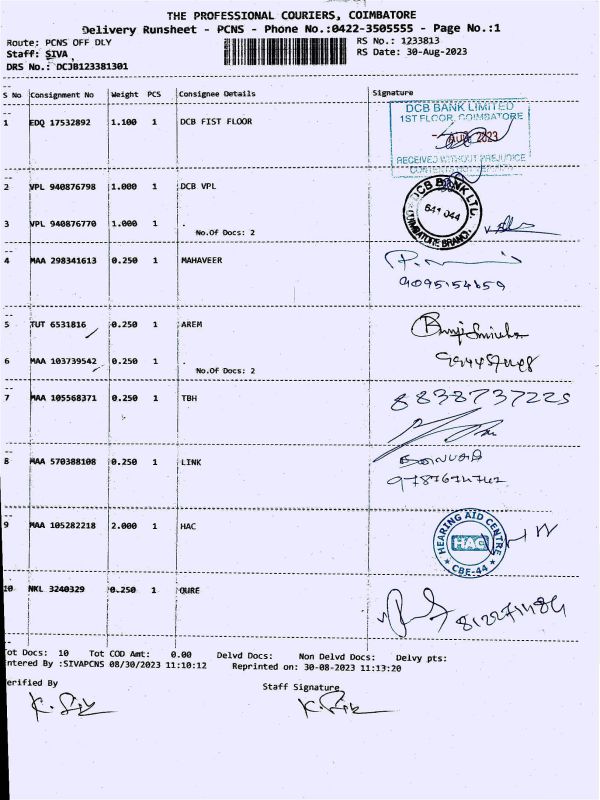 THE PROFESSIONAL COURIERS, COIMBATORE
Delivery Runsheet - PCNS - Phone No.:0422-3505555 - Page No.:1
Route: PCNS OFF DLY
RS No.: 1233813
Staff: SIVA,
RS Date: 30-Aug-2023
DRS No.: DCJB123381301
S No Consignment No Weight PCS Consignee Details Signature
1 EDQ 17532892 1.100 1 DCB FIST FLOOR
DCB BANK LIMITED
1ST FLOOR, COIMBATORE
AUG 2023
RECEIVED WITHOUT PREJUDICE
2 VPL 940876798 1.000 1 DCB VPL
DCB BANK LTD.
641 044
COIMBATORE BRANCH
3 VPL 940876770 1.000 1 .
No.Of Docs: 2
4 MAA 298341613 0.250 1 MAHAVEER
9095154659
5 TUT 6531816 0.250 1 AREM
6 MAA 103739542 0.250 1 .
No.Of Docs: 2
7 MAA 105568371 0.250 1 TBH
8838737225
8 MAA 570388108 0.250 1 LINK
9 MAA 105282218 2.000 1 HAC
HEARING AID CENTRE
HAC
CBE-44
10 NKL 3240329 0.250 1 QURE
Tot Docs: 10 Tot COD Amt: 0.00 Delvd Docs: Non Delvd Docs: Delvy pts:
Entered By :SIVAPCNS 08/30/2023 11:10:12 Reprinted on: 30-08-2023 11:13:20
Verified By
Staff Signature